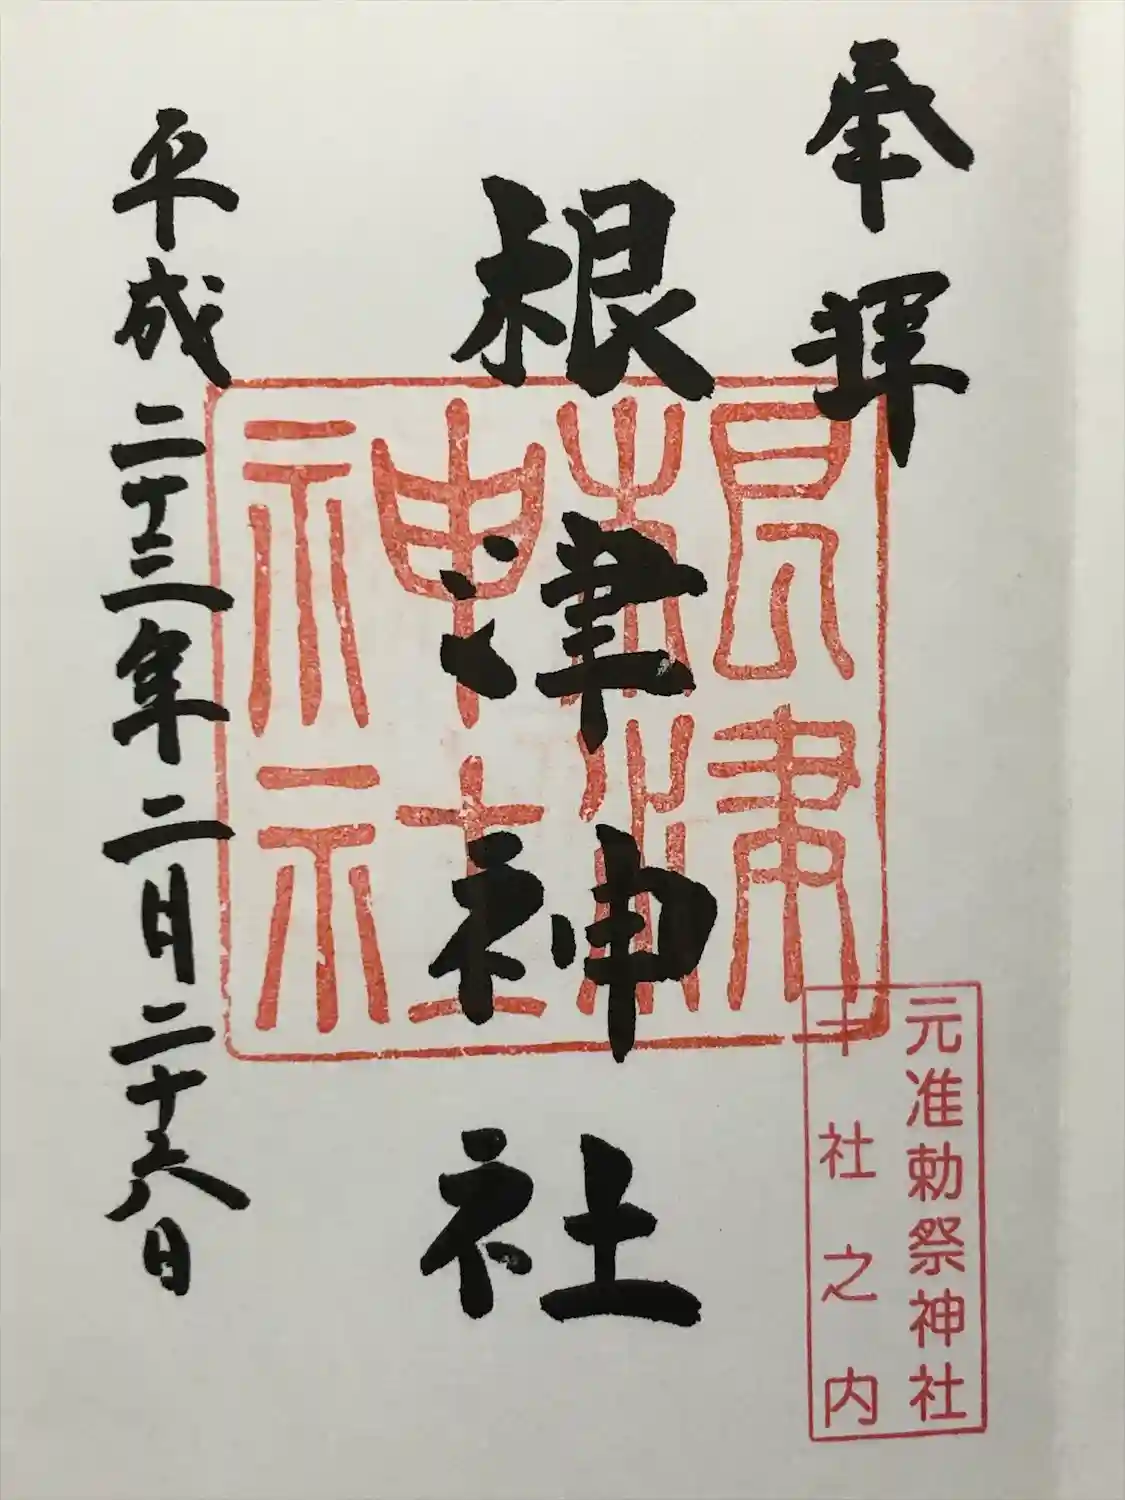 奉拝
根津神社
平成二十三年二月二十六日
根津
神社
元准勅祭神社
十社之内